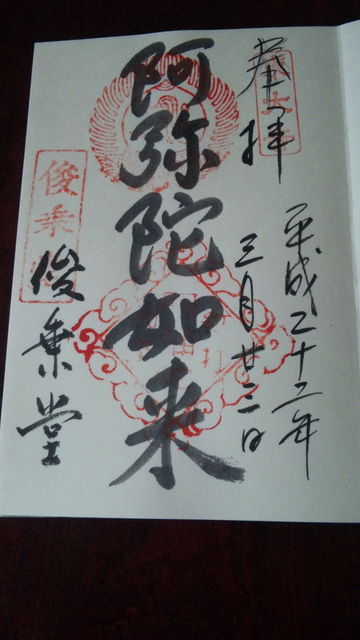 奉拝
平成二十二年
三月廿二日
阿弥陀如来
俊乗堂
俊乗